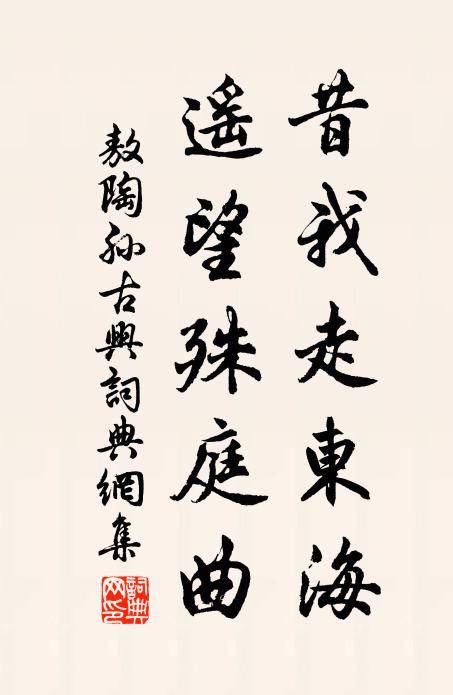 昔我走東海
遥望殊庭曲
敖陶孙古興詞典網集
詞典網印